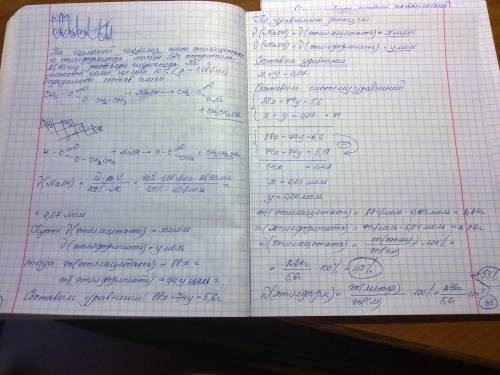 На щелочной гидролиз смеси этилацетата
и этилформиата массой 5,6 г потратили
раствора гидроксида Na с
массовой долей щелочи 10%
Определите состав смеси
CH₃ - C =O
O - CH₂ - CH₃
+ NaOH → CH₃ - C =O
ONa
+ CH₃CH₂OH
H - C =O
O - CH₂CH₃
+ NaOH → H - C =O
ONa
+ CH₃CH₂OH
ν(NaOH) =
100% · M
=
100% · 40 г/моль
=
= 0,07 моль
Пусть ν(этилацетата) = x моль
ν(этилформиата) = y моль
тогда m(этилацетата) = 88x г
m(этилформиата) = 74y г
Составим уравнение: 88x + 74y = 5,6
По уравнению реакции
ν(NaOH) = ν(этилацетата) = x моль
ν(NaOH) = ν(этилформиата) = y моль
Составим уравнение
x + y = 0,07
Составим систему уравнений
88x + 74y = 5,6
x + y = 0,07 · 74
88x + 74y = 5,6
74x + 74y = 5,18
14x = 0,42
x = 0,03 моль
y = 0,04 моль
m(этилацетата) = 88 г/моль · 0,03 моль = 2,64 г
m(этилформиата) = 74 г/моль · 0,04 моль = 2,96 г
ω(этилацетата) =
m(см)
· 100% =
= 2,64 г
5,6 г
· 100% = 47%
ω(этилформ) =
· 100% = 2,96 г
5,6 г
· 100%
= 53%